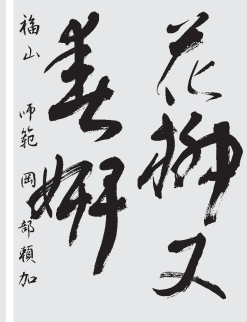 花柳又
春妍
福山 師範 岡部頼加